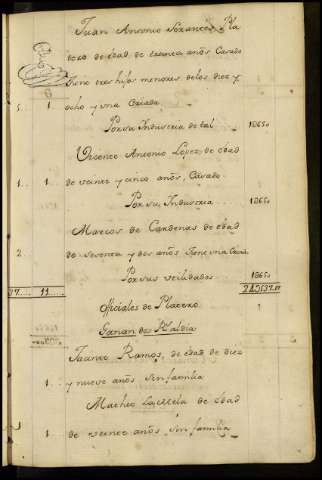 Juan Antonio Pla
tero de edad de treinta años Casado
tiene tres hijos menores de los diez y
5 . . 1 . . ocho y una Criada
Por su Industria de tal . . 1865
Vicente Antonio Lopez, de edad
1 . . 1 . . de veinte y cinco años, Casado
Por su Industria . . 1865
Marcos de Cardenas de edad
2 . . de setenta y dos años tiene una Criada
Por sus utilidades . . 1865
11 . .
Officiales de Platero
Ganan dos Rs al dia
Jacinto Ramos, de edad de diez
1 . . y nueve años sin familia
Matheo de edad
1 . . de veinte años, sin familia